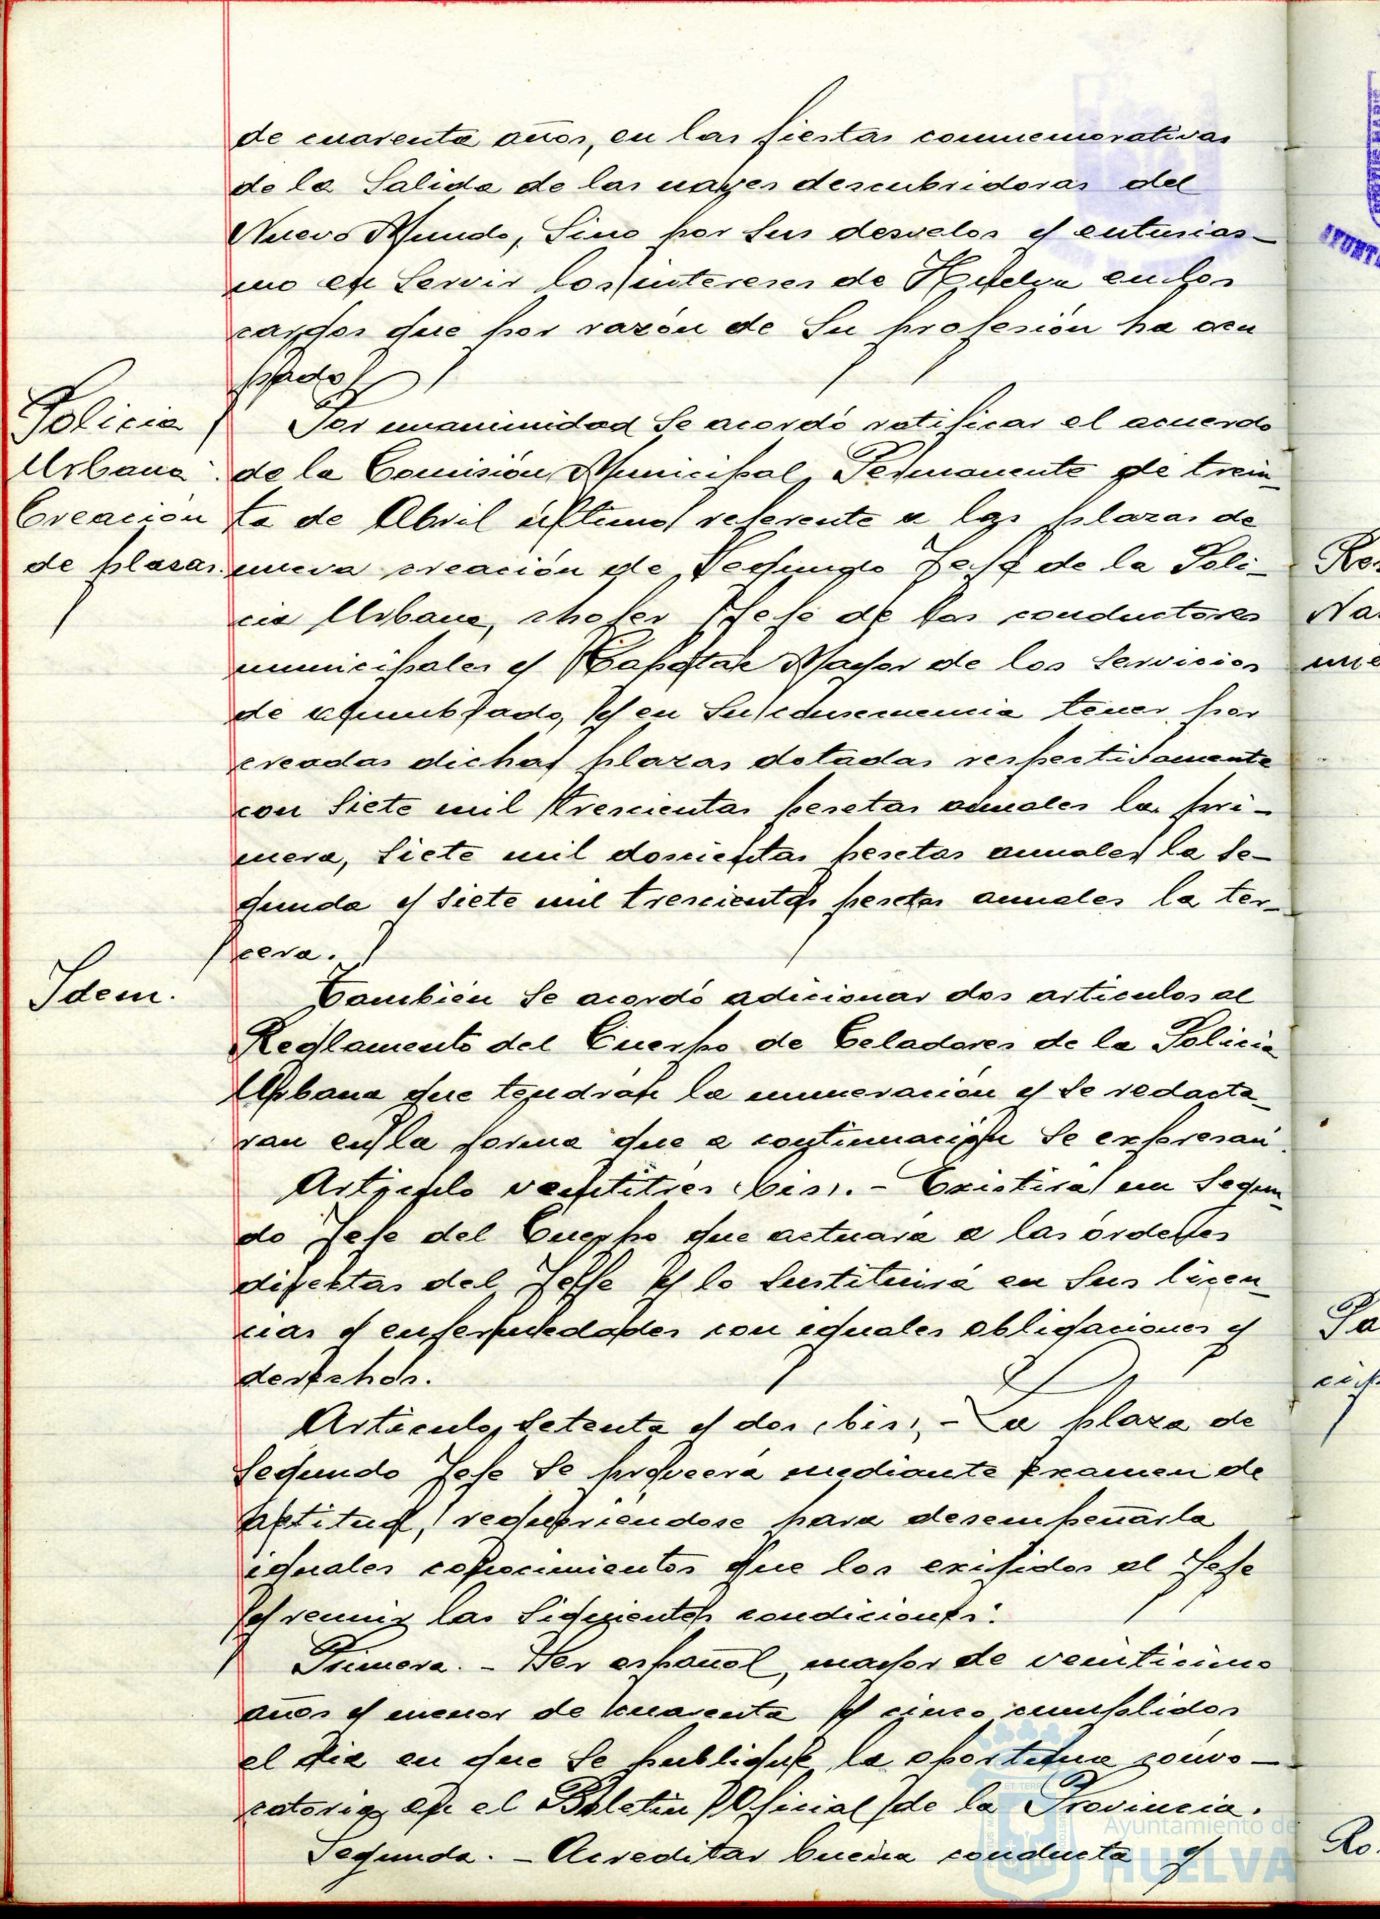 de cuarenta años, en las fiestas conmemorativas
de la Salida de las naves descubridoras del
Nuevo Mundo, Sino por Sus desvelos y entusias-
mo en Servir los intereses de Huelva en los
cargos que por razón de Su profesión ha ocu
pado.
Policia
Urbana.
Creación
de plasas.
Por unanimidad Se acordó ratificar el acuerdo
de la Comisión Municipal Permanente de trein-
ta de Abril último referente a las plazas de
nueva creación de Segundo Jefe de la Poli-
cia Urbana, chofer Jefe de los conductores
municipales y Capataz Mayor de los Servicios
de alumbrado, y en Su consecuencia tener por
creadas dichas plazas dotadas respectivamente
con Siete mil trescientas pesetas anuales la pri-
mera, Siete mil doscientas pesetas anuales la Se-
gunda y Siete mil trescientas pesetas anuales la ter-
cera.
Idem.
También Se acordó adicionar dos articulos al
Reglamento del Cuerpo de Celadores de la Policia
Urbana que tendrán la numeración y Se redacta-
ran en la forma que a continuación Se expresan.
Articulo veintitrés (bis).- Existirá un Segun-
do Jefe del Cuerpo que actuará a las órdenes
directas del Jefe y lo Sustituirá en Sus licen-
cias y enfermedades con iguales obligaciones y
derechos.
Articulo Setenta y dos (bis).- La plaza de
Segundo Jefe Se proveerá mediante examen de
aptitud, requeriéndose para desempeñarla
iguales conocimientos que los exigidos al Jefe
y reunir las Siguientes condiciones:
Primera.- Ser español, mayor de veinticinco
años y menor de cuarenta y cinco cumplidos
el dia en que Se publique la oportuna convo-
catoria en el Boletin Oficial de la Provincia.
Segunda.- Acreditar buena conducta y
Ayuntamiento de
HUELVA